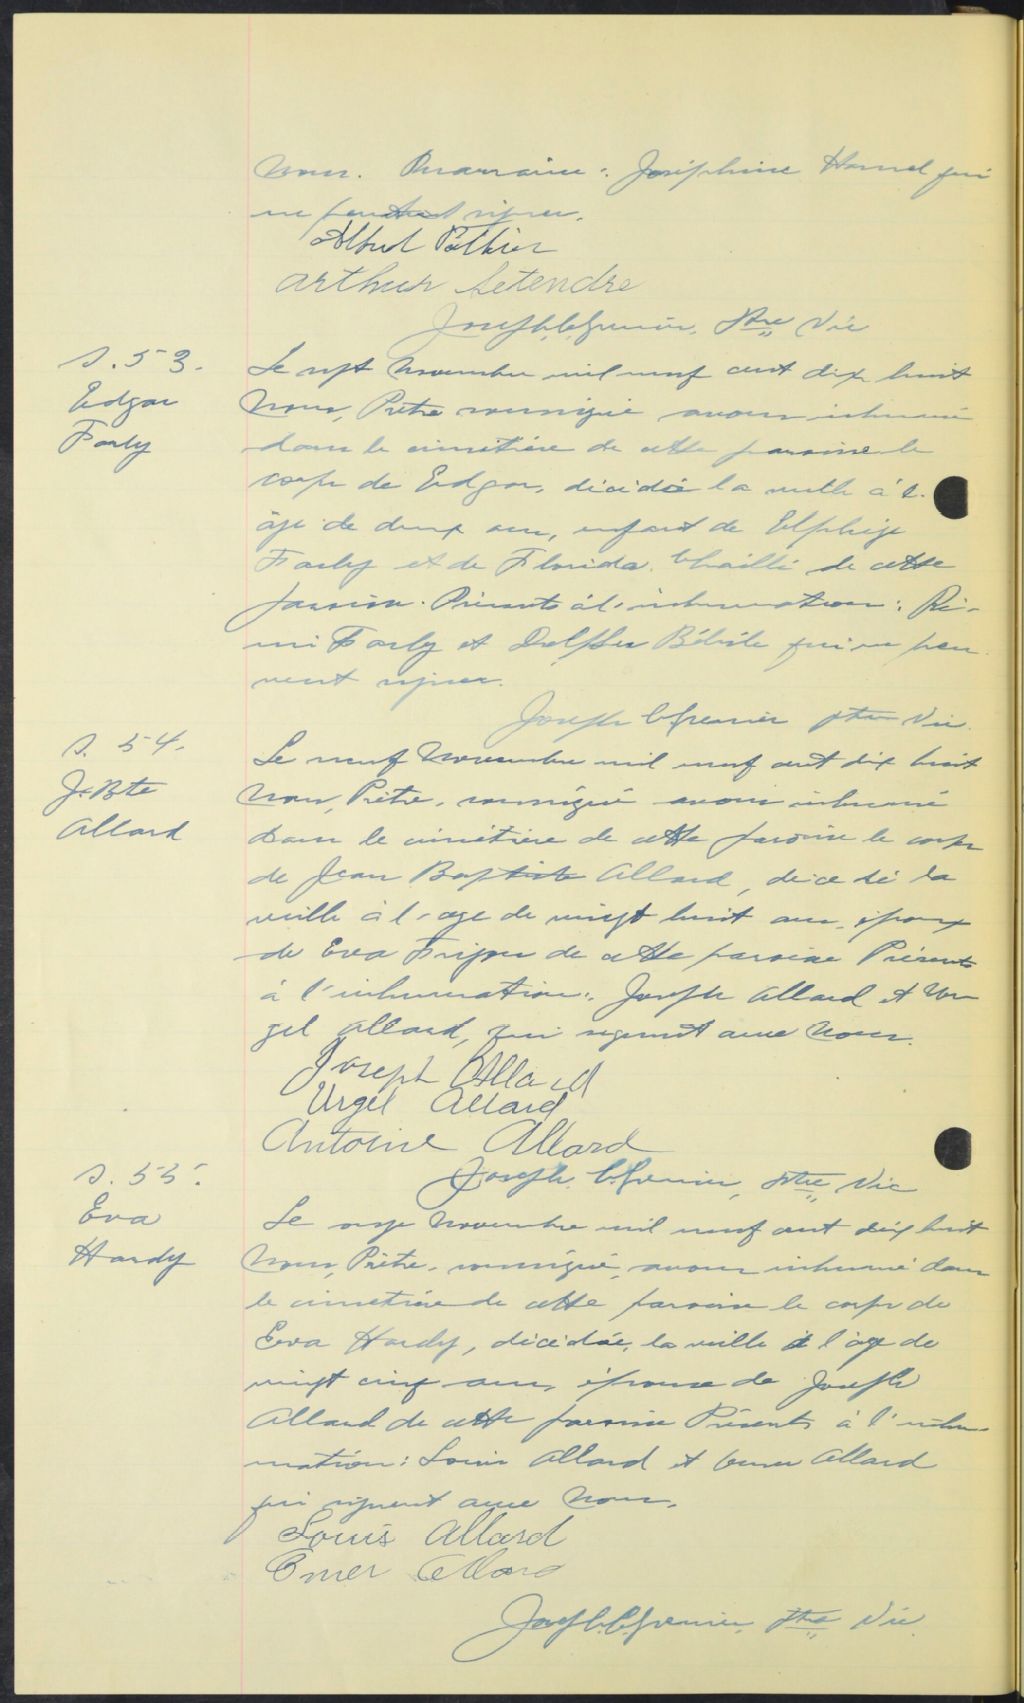 Nous. Marraine: Joséphine Hamel qui
ne peut signer.
Albert Pothier
Arthur Letendre
Joseph C. Grenier, Ptre Vic
S. 53.
Edgar
Farly
Le sept Novembre mil neuf cent dix huit
Nous, Prêtre soussigné avons inhumé
dans le cimetière de cette paroisse le
corps de Edgar, décédé la veille à l'
âge de deux ans, enfant de Elphège
Farly et de Florida Chaillé de cette
paroisse. Présents à l'inhumation: Ré-
mi Farly et qui ne peu
vent signer.
Joseph C. Grenier ptre Vic.
S. 54.
J-Bte
Allard
Le neuf Novembre mil neuf cent dix huit
Nous, Prêtre, soussigné avons inhumé
dans le cimetière de cette paroisse le corps
de Jean Baptiste Allard, décédé la
veille à l'age de vingt huit ans, époux
de Eva Frigon de cette paroisse Présents
à l'inhumation: Joseph Allard et Ur
gel Allard, qui signent avec Nous.
Joseph Allard
Urgèl Allard
Antoine Allard
Joseph C. Grenier, Ptre Vic
S. 55.
Eva
Hardy
Le onze Novembre mil neuf cent dix huit
Nous, Prêtre, soussigné, avons inhumé dans
le cimetière de cette paroisse le corps de
Eva Hardy, décédée, la veille à l'âge de
vingt cinq ans, épouse de Joseph
Allard de cette paroisse Présents à l'inhu-
mation: Louis Allard et Omer Allard
qui signent avec Nous.
Louis Allard
Omer Allard
Joseph C. Grenier, Ptre Vic.